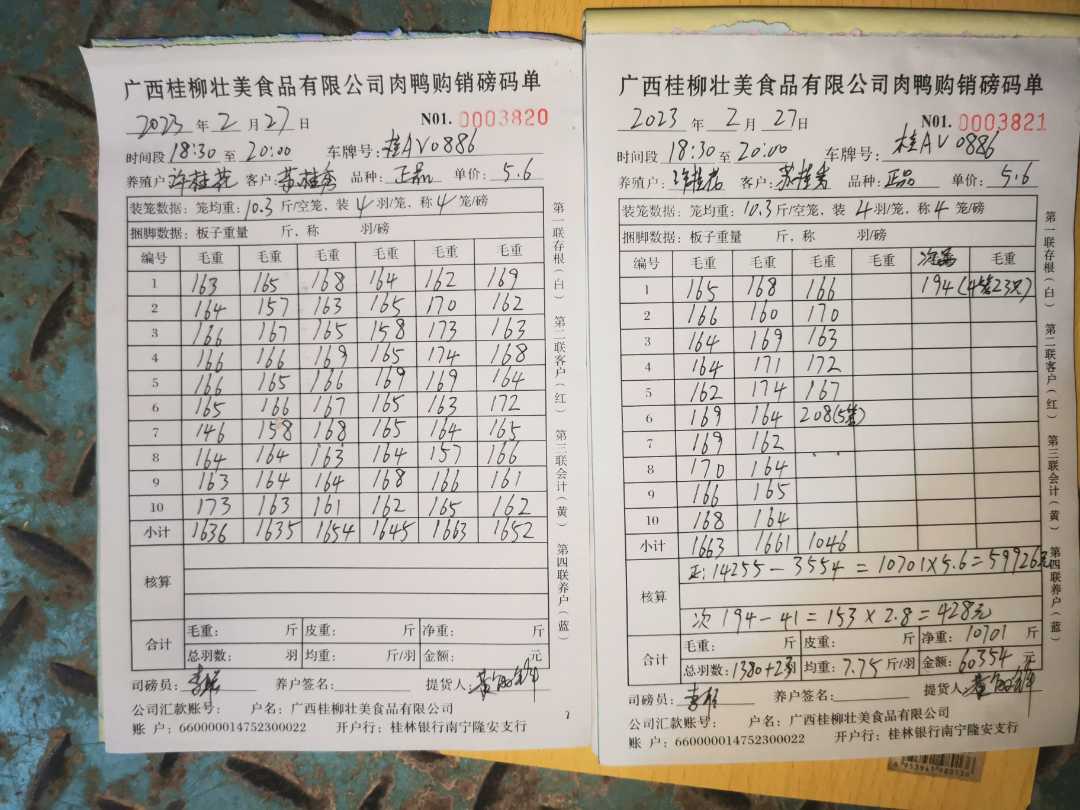 广西桂柳壮美食品有限公司肉鸭购销磅码单
2023 年 2 月 27 日 N01. 0003820
时间段 18:30 至 20:00 车牌号: 桂AV0886
养殖户 许桂花 客户: 苏桂秀 品种: 正品 单价: 5.6
装笼数据: 笼均重: 10.3 斤/空笼, 装 4 羽/笼, 称 4 笼/磅
捆脚数据: 板子重量 斤, 称 羽/磅
编号 毛重 毛重 毛重 毛重 毛重 毛重
1 163 165 168 164 162 169
2 164 157 163 165 170 162
3 166 167 165 158 173 163
4 166 166 169 165 174 168
5 166 165 166 169 169 164
6 165 166 167 165 163 172
7 146 158 168 165 164 165
8 164 164 163 164 157 166
9 163 164 164 168 166 161
10 173 163 161 162 165 162
小计 1636 1635 1654 1645 1663 1652
核算
合计 毛重: 斤 皮重: 斤 净重: 斤
总羽数: 羽 均重: 斤/羽 金额: 元
司磅员: 养户签名: 提货人:
公司汇款账号: 户名: 广西桂柳壮美食品有限公司
账 户: 660000014752300022 开户行: 桂林银行南宁隆安支行
第一联存根(白) 第二联客户(红) 第三联会计(黄) 第四联养户(蓝)
广西桂柳壮美食品有限公司肉鸭购销磅码单
2023 年 2 月 27 日 N01. 0003821
时间段 18:30 至 20:00 车牌号: 桂AV0886
养殖户: 许桂花 客户: 苏桂秀 品种: 正品 单价: 5.6
装笼数据: 笼均重: 10.3 斤/空笼, 装 4 羽/笼, 称 4 笼/磅
捆脚数据: 板子重量 斤, 称 羽/磅
编号 毛重 毛重 毛重 毛重 毛重
1 165 168 166 194(4笼23只)
2 166 160 170
3 164 169 163
4 164 171 172
5 162 174 167
6 169 164 208(5笼)
7 169 162
8 170 164
9 166 165
10 168 164
小计 1663 1661 1046
核算 正: 14255-3554=10701×5.6=59926元
次 194-41=153×2.8=428元
合计 毛重: 斤 皮重: 斤 净重: 10701 斤
总羽数: 1380+23羽 均重: 7.75 斤/羽 金额: 60354 元
司磅员: 养户签名: 提货人:
公司汇款账号: 户名: 广西桂柳壮美食品有限公司
账 户: 660000014752300022 开户行: 桂林银行南宁隆安支行
第一联存根(白) 第二联客户(红) 第三联会计(黄) 第四联养户(蓝)